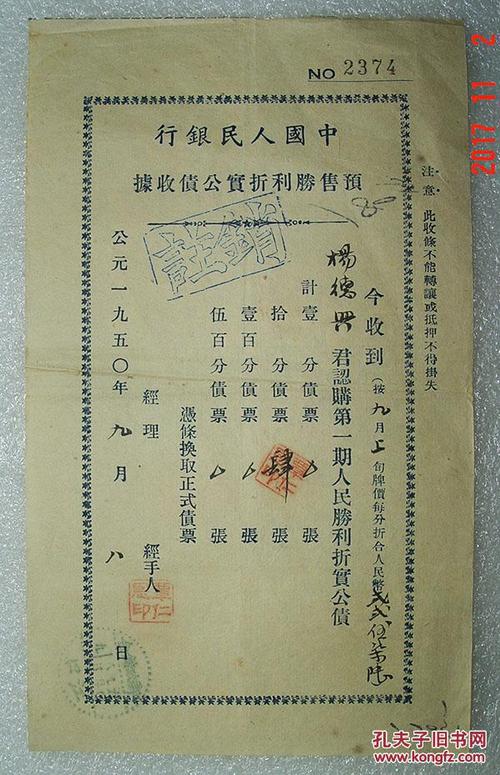 NO 2374
中國人民銀行
預售勝利折實公債收據
注意 此收條不能轉讓或抵押不得掛失
今收到(按九月上旬牌價每分折合人民幣
楊德興 君認購第一期人民勝利折實公債
計壹分債票 厶 張
拾分債票 肆 張
壹百分債票 厶 張
伍百分債票 厶 張
憑條換取正式債票
經理 經手人
公元一九五〇年 九月 八日
註銷
2017 11 2
孔夫子旧书网
www.kongfz.com